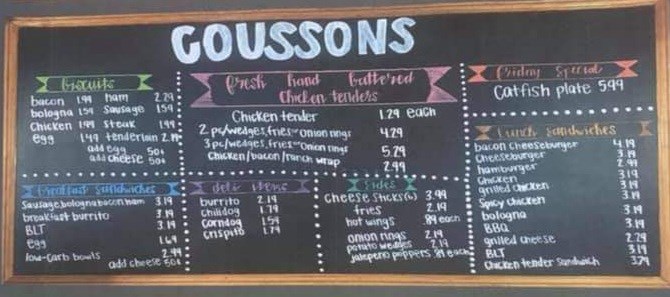 GOUSSONS
Biscuits
bacon 1.99 ham 2.29
bologna 1.59 sausage 1.59
Chicken 1.99 steak 1.99
egg 1.49 tenderloin 2.19
add egg 50¢
add cheese 50¢
fresh hand battered
Chicken tenders
Chicken tender 1.29 each
2 pc/wedges, fries or onion rings 4.29
3 pc/wedges, fries or onion rings 5.29
Chicken/bacon/ranch wrap 2.99
Friday Special
Catfish plate 5.99
Breakfast Sandwiches
Sausage, bologna, bacon, ham 3.19
breakfast burrito 3.19
BLT 3.19
egg 1.69
low-carb bowls 2.99
add cheese 50¢
deli items
burrito 2.19
chilidog 1.79
corndog 1.59
crispito 1.79
Sides
cheese sticks(6) 3.99
fries 2.19
hot wings .89 each
onion rings 2.19
potato wedges 2.19
jalapeno poppers .89 each
Lunch Sandwiches
bacon cheeseburger 4.19
cheeseburger 3.19
hamburger 2.99
chicken 3.19
grilled chicken 3.19
Spicy chicken 3.19
bologna 3.19
BBQ 3.19
grilled cheese 2.29
BLT 3.19
Chicken tender sandwich 3.79